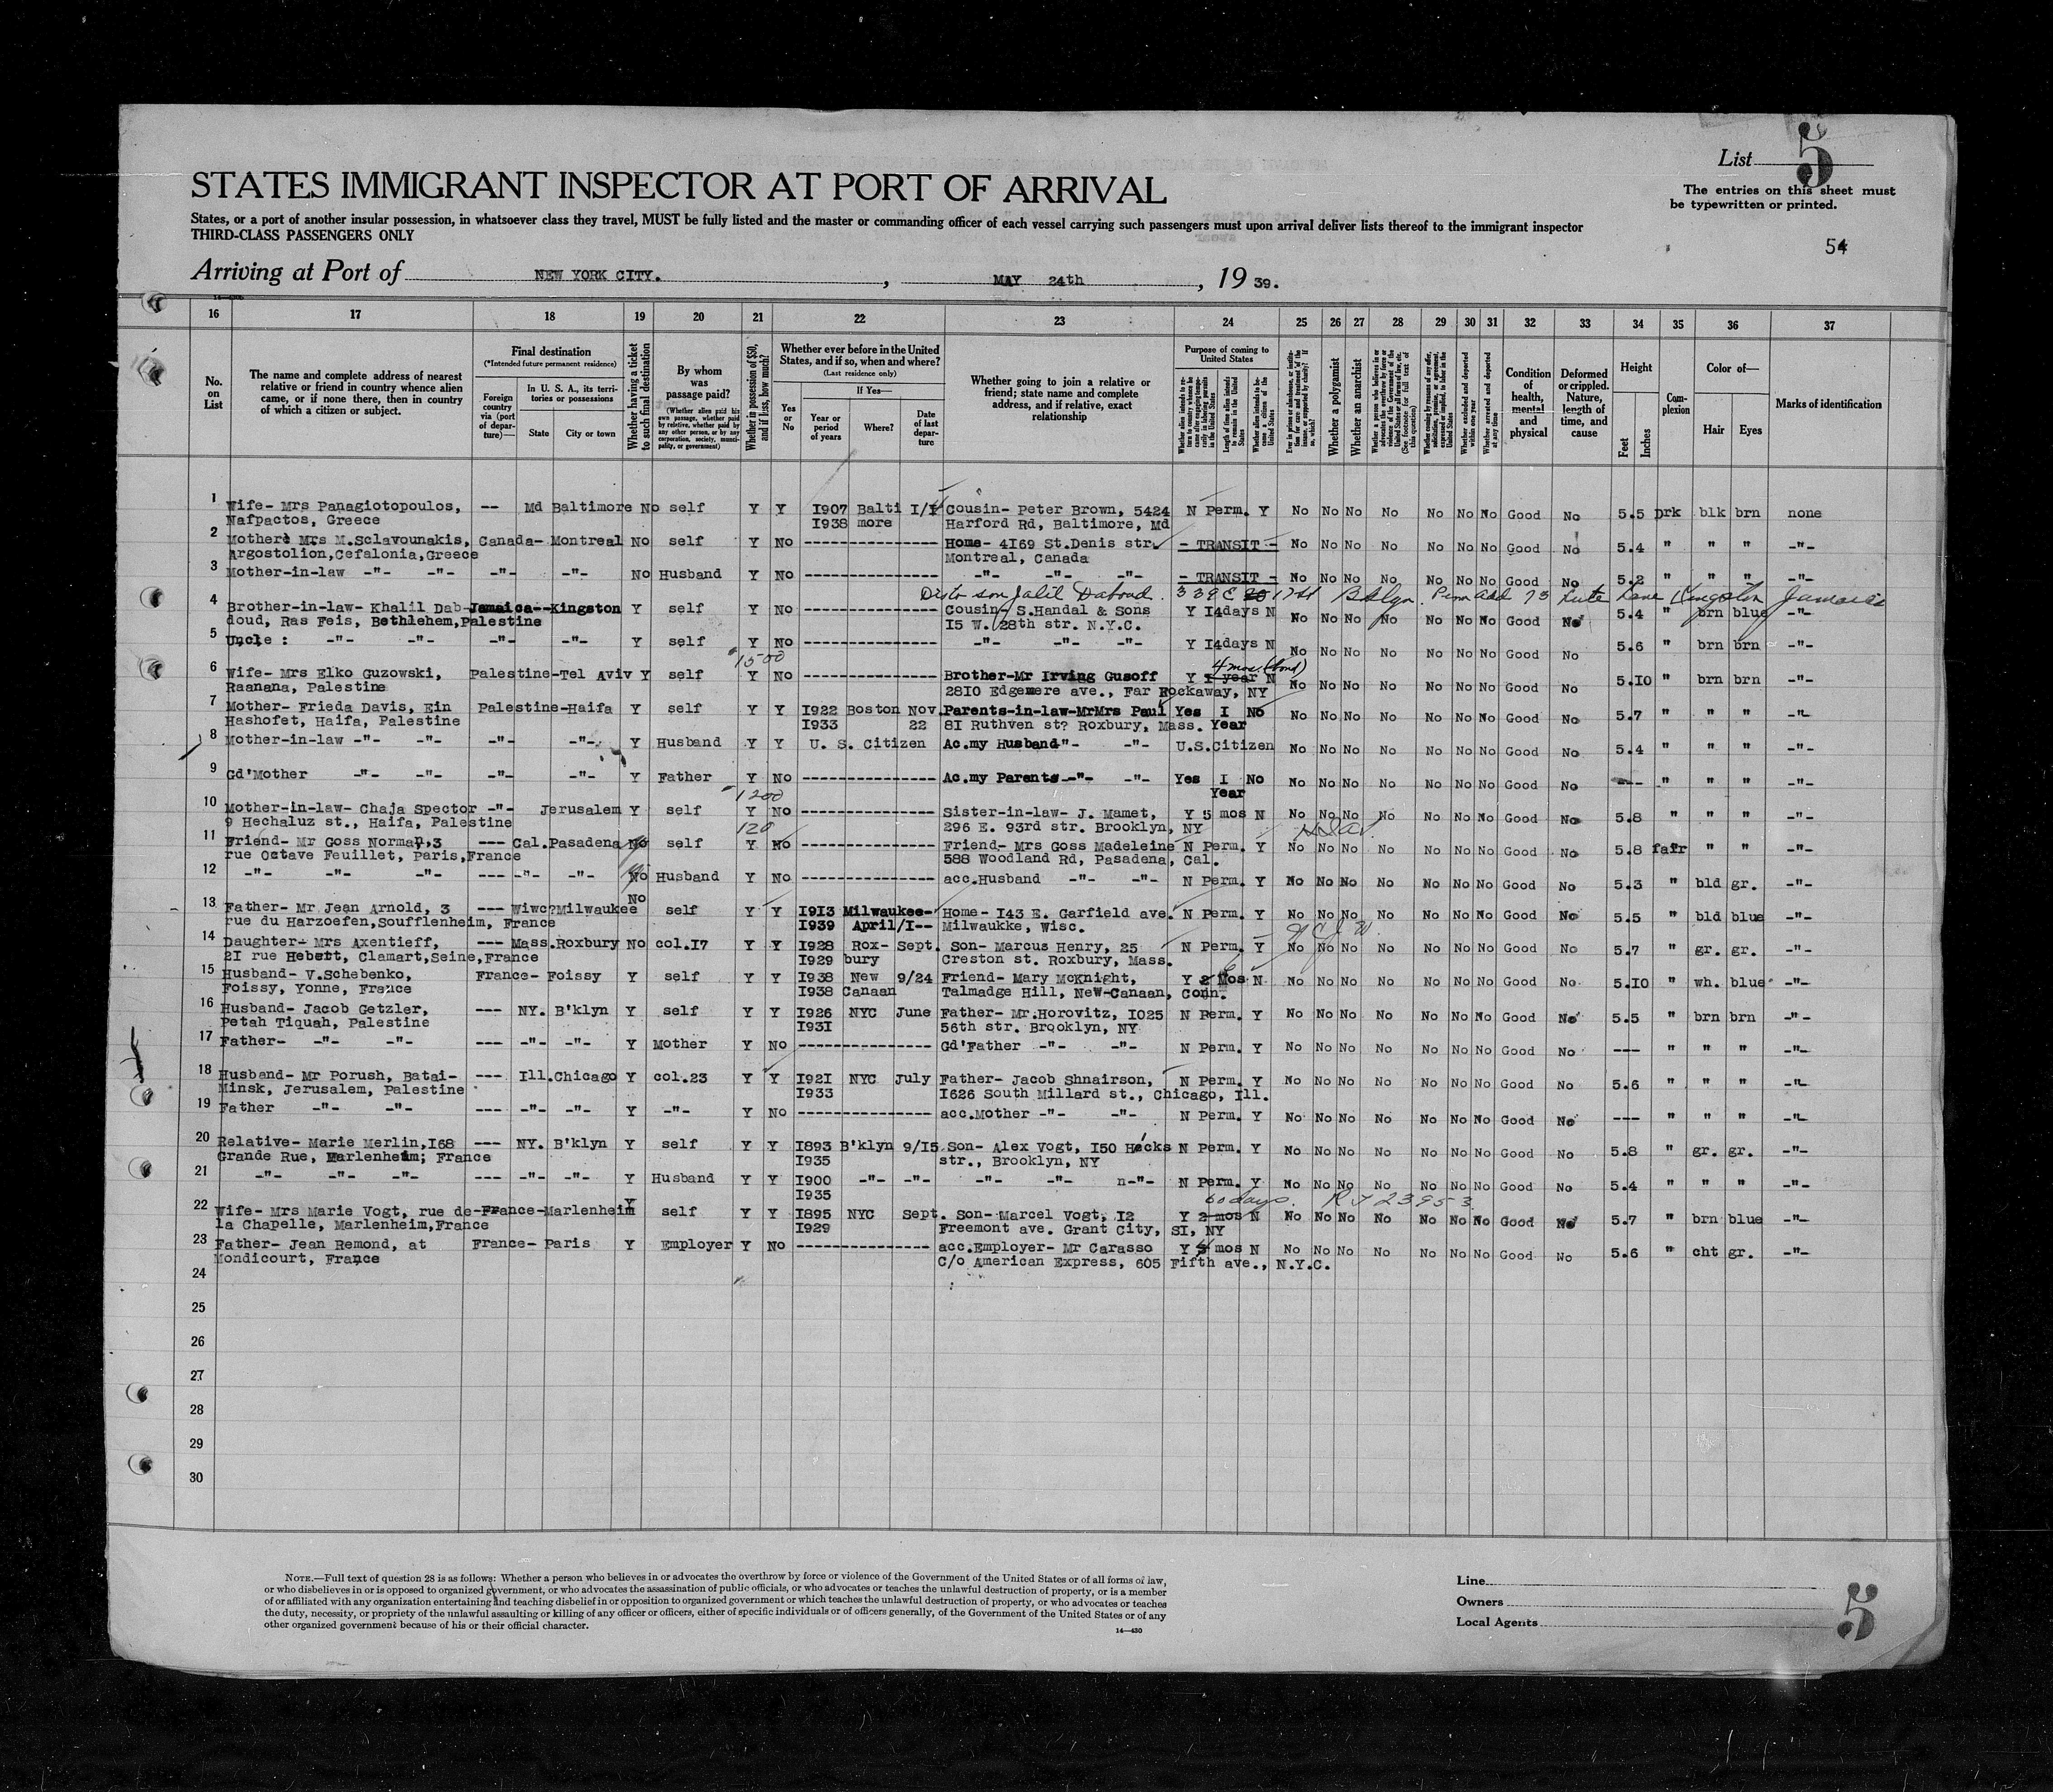 List 5
STATES IMMIGRANT INSPECTOR AT PORT OF ARRIVAL
The entries on this sheet must
be typewritten or printed.
States, or a port of another insular possession, in whatsoever class they travel, MUST be fully listed and the master or commanding officer of each vessel carrying such passengers must upon arrival deliver lists thereof to the immigrant inspector
THIRD-CLASS PASSENGERS ONLY
54
Arriving at Port of NEW YORK CITY. , MAY 24th , 19 39.
16 17 18 19 20 21 22 23 24 25 26 27 28 29 30 31 32 33 34 35 36 37
No. on List
The name and complete address of nearest relative or friend in country whence alien came, or if none there, then in country of which a citizen or subject.
Final destination
(*Intended future permanent residence)
Foreign country via (port of departure)—
In U. S. A., its territories or possessions
State
City or town
Whether having a ticket to such final destination
By whom was passage paid?
(Whether alien paid his own passage, whether paid by relative, whether paid by any other person, or by any corporation, society, municipality, or government)
Whether in possession of $50, and if less, how much?
Whether ever before in the United States, and if so, when and where?
(Last residence only)
Yes or No
If Yes—
Year or period of years
Where?
Date of last departure
Whether going to join a relative or friend; state name and complete address, and if relative, exact relationship
Purpose of coming to United States
Length of time alien intends to remain in the United States
Whether alien intends to become a citizen of the United States
Whether a polygamist
Whether an anarchist
Whether excluded and deported within one year
Whether arrested and deported at any time
Condition of health, mental and physical
Deformed or crippled. Nature, length of time, and cause
Height
Feet
Inches
Complexion
Color of—
Hair
Eyes
Marks of identification
1 Wife- Mrs Panagiotopoulos, -- Md Baltimore No self Y Y I907 Balti I/I Cousin- Peter Brown, 5424 N Perm. Y No No No No No No No Good No 5.5 Drk blk brn none
Nafpactos, Greece I938 more Harford Rd, Baltimore, Md
2 Mother: Mrs M.Sclavounakis, Canada- Montreal No self Y No ---------------- Home- 4I69 St.Denis str. - TRANSIT - No No No No No No No Good No 5.4 " " " -"-
Argostolion,Cefalonia,Greece Montreal, Canada
3 Mother-in-law -"- -"- -"- -"- No Husband Y No ---------------- -"- -"- -"- - TRANSIT - No No No No No No No Good No 5.2 " " " -"-
son Jalil Daboud. 339 C 17 St Bklyn. Perm add 73 Lane Kingston Jamaica
4 Brother-in-law- Khalil Dab- Jamaica--Kingston Y self Y No ---------------- Cousin- S.Handal & Sons Y I4days N No No No No No No No Good No 5.4 " brn blue -"-
doud, Ras Feis, Bethlehem,Palestine I5 W. 28th str. N.Y.C.
5 Uncle : -"- -"- -"- -"- Y self Y No ---------------- -"- -"- -"- Y I4days N No No No No No No No Good No 5.6 " brn brn -"-
1500 4 mos (bond)
6 Wife- Mrs Elko Guzowski, Palestine-Tel Aviv Y self Y No ---------------- Brother-Mr Irving Gusoff Y I year N No No No No No No No Good No 5.I0 " brn brn -"-
Raanana, Palestine 28I0 Edgemere ave., Far Rockaway, NY
7 Mother- Frieda Davis, Ein Palestine-Haifa Y self Y Y I922 Boston Nov. Parents-in-law-MrMrs Paul Yes I No No No No No No No No Good No 5.7 " " " -"-
Hashofet, Haifa, Palestine I933 22 8I Ruthven st? Roxbury, Mass. Year
8 Mother-in-law -"- -"- -"- -"- Y Husband Y Y U. S. Citizen Ac.my Husband"- -"- U.S.Citizen No No No No No No No Good No 5.4 " " " -"-
9 Gd'Mother -"- -"- -"- -"- Y Father Y No ---------------- Ac.my Parents-"- -"- Yes I No No No No No No No No Good No --- " " " -"-
1200 Year
10 Mother-in-law- Chaja Spector -"- Jerusalem Y self Y No ---------------- Sister-in-law- J. Mamet, Y 5 mos N No No No No No No No Good No 5.8 " " " -"-
9 Hechaluz st., Haifa, Palestine 296 E. 93rd str. Brooklyn, NY
120
11 Friend- Mr Goss Norman,3 --- Cal.Pasadena No self Y No ---------------- Friend- Mrs Goss Madeleine N Perm. Y No No No No No No No Good No 5.8 fair " " -"-
rue Octave Feuillet, Paris,France 588 Woodland Rd, Pasadena, Cal.
12 -"- -"- -"- --- -"- -"- No Husband Y No ---------------- acc.Husband -"- -"- N Perm. Y No No No No No No No Good No 5.3 " bld gr. -"-
13 Father- Mr Jean Arnold, 3 --- Wiwc?Milwaukee No self Y Y I9I3 Milwaukee- Home- I43 E. Garfield ave. N Perm. Y No No No No No No No Good No 5.5 " bld blue -"-
rue du Harzoefen,Soufflenheim, France I939 April/I-- Milwaukke, Wisc.
14 Daughter- Mrs Axentieff, --- Mass.Roxbury No col.I7 Y Y I928 Rox- Sept. Son- Marcus Henry, 25 N Perm. Y No No No No No No No Good No 5.7 " gr. gr. -"-
2I rue Hebert, Clamart,Seine,France I929 bury Creston st. Roxbury, Mass.
15 Husband- V.Schebenko, France- Foissy Y self Y Y I938 New 9/24 Friend- Mary McKnight, Y 2 Mos N No No No No No No No Good No 5.I0 " wh. blue -"-
Foissy, Yonne, France I938 Canaan Talmadge Hill, New-Canaan, Conn.
16 Husband- Jacob Getzler, --- NY. B'klyn Y self Y Y I926 NYC June Father- Mr.Horovitz, I025 N Perm. Y No No No No No No No Good No 5.5 " brn brn -"-
Petah Tiquah, Palestine I93I 56th str. Brooklyn, NY
17 Father- -"- -"- --- -"- -"- Y Mother Y No ---------------- Gd'Father -"- -"- N Perm. Y No No No No No No No Good No --- " " " -"-
18 Husband- Mr Porush, Batai- --- Ill.Chicago Y col.23 Y Y I92I NYC July Father- Jacob Shnairson, N Perm. Y No No No No No No No Good No 5.6 " " " -"-
Minsk, Jerusalem, Palestine I933 I626 South Millard st., Chicago, Ill.
19 Father -"- -"- --- -"- -"- Y -"- Y No ---------------- acc.Mother -"- -"- N Perm. Y No No No No No No No Good No --- " " " -"-
20 Relative- Marie Merlin,I68 --- NY. B'klyn Y self Y Y I893 B'klyn 9/I5 Son- Alex Vogt, I50 Hecks N Perm. Y No No No No No No No Good No 5.8 " gr. gr. -"-
Grande Rue, Marlenheim; France I935 str., Brooklyn, NY
21 -"- -"- -"- --- -"- -"- Y Husband Y Y I900 -"- -"- -"- -"- n-"- N Perm. Y No No No No No No No Good No 5.4 " " " -"-
I935 60 days. 23953
22 Wife- Mrs Marie Vogt, rue de-France-Marlenheim Y self Y Y I895 NYC Sept. Son- Marcel Vogt, I2 Y 2 mos N No No No No No No No Good No 5.7 " brn blue -"-
la Chapelle, Marlenheim,France I929 Freemont ave. Grant City, SI, NY
23 Father- Jean Remond, at France- Paris Y Employer Y No ---------------- acc.Employer- Mr Carasso Y mos N No No No No No No No Good No 5.6 " cht gr. -"-
Mondicourt, France C/o American Express, 605 Fifth ave., N.Y.C.
24
25
26
27
28
29
30
NOTE.—Full text of question 28 is as follows: Whether a person who believes in or advocates the overthrow by force or violence of the Government of the United States or of all forms of law,
or who disbelieves in or is opposed to organized government, or who advocates the assassination of public officials, or who advocates or teaches the unlawful destruction of property, or is a member
of or affiliated with any organization entertaining and teaching disbelief in or opposition to organized government or which teaches the unlawful destruction of property, or who advocates or teaches
the duty, necessity, or propriety of the unlawful assaulting or killing of any officer or officers, either of specific individuals or of officers generally, of the Government of the United States or of any
other organized government because of his or their official character.
14—430
Line
Owners
Local Agents
5